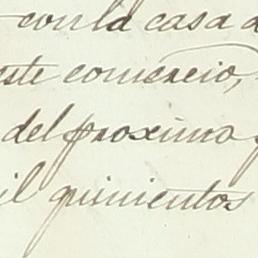 con la casa d
este comercio,
del proximo
il quinientos